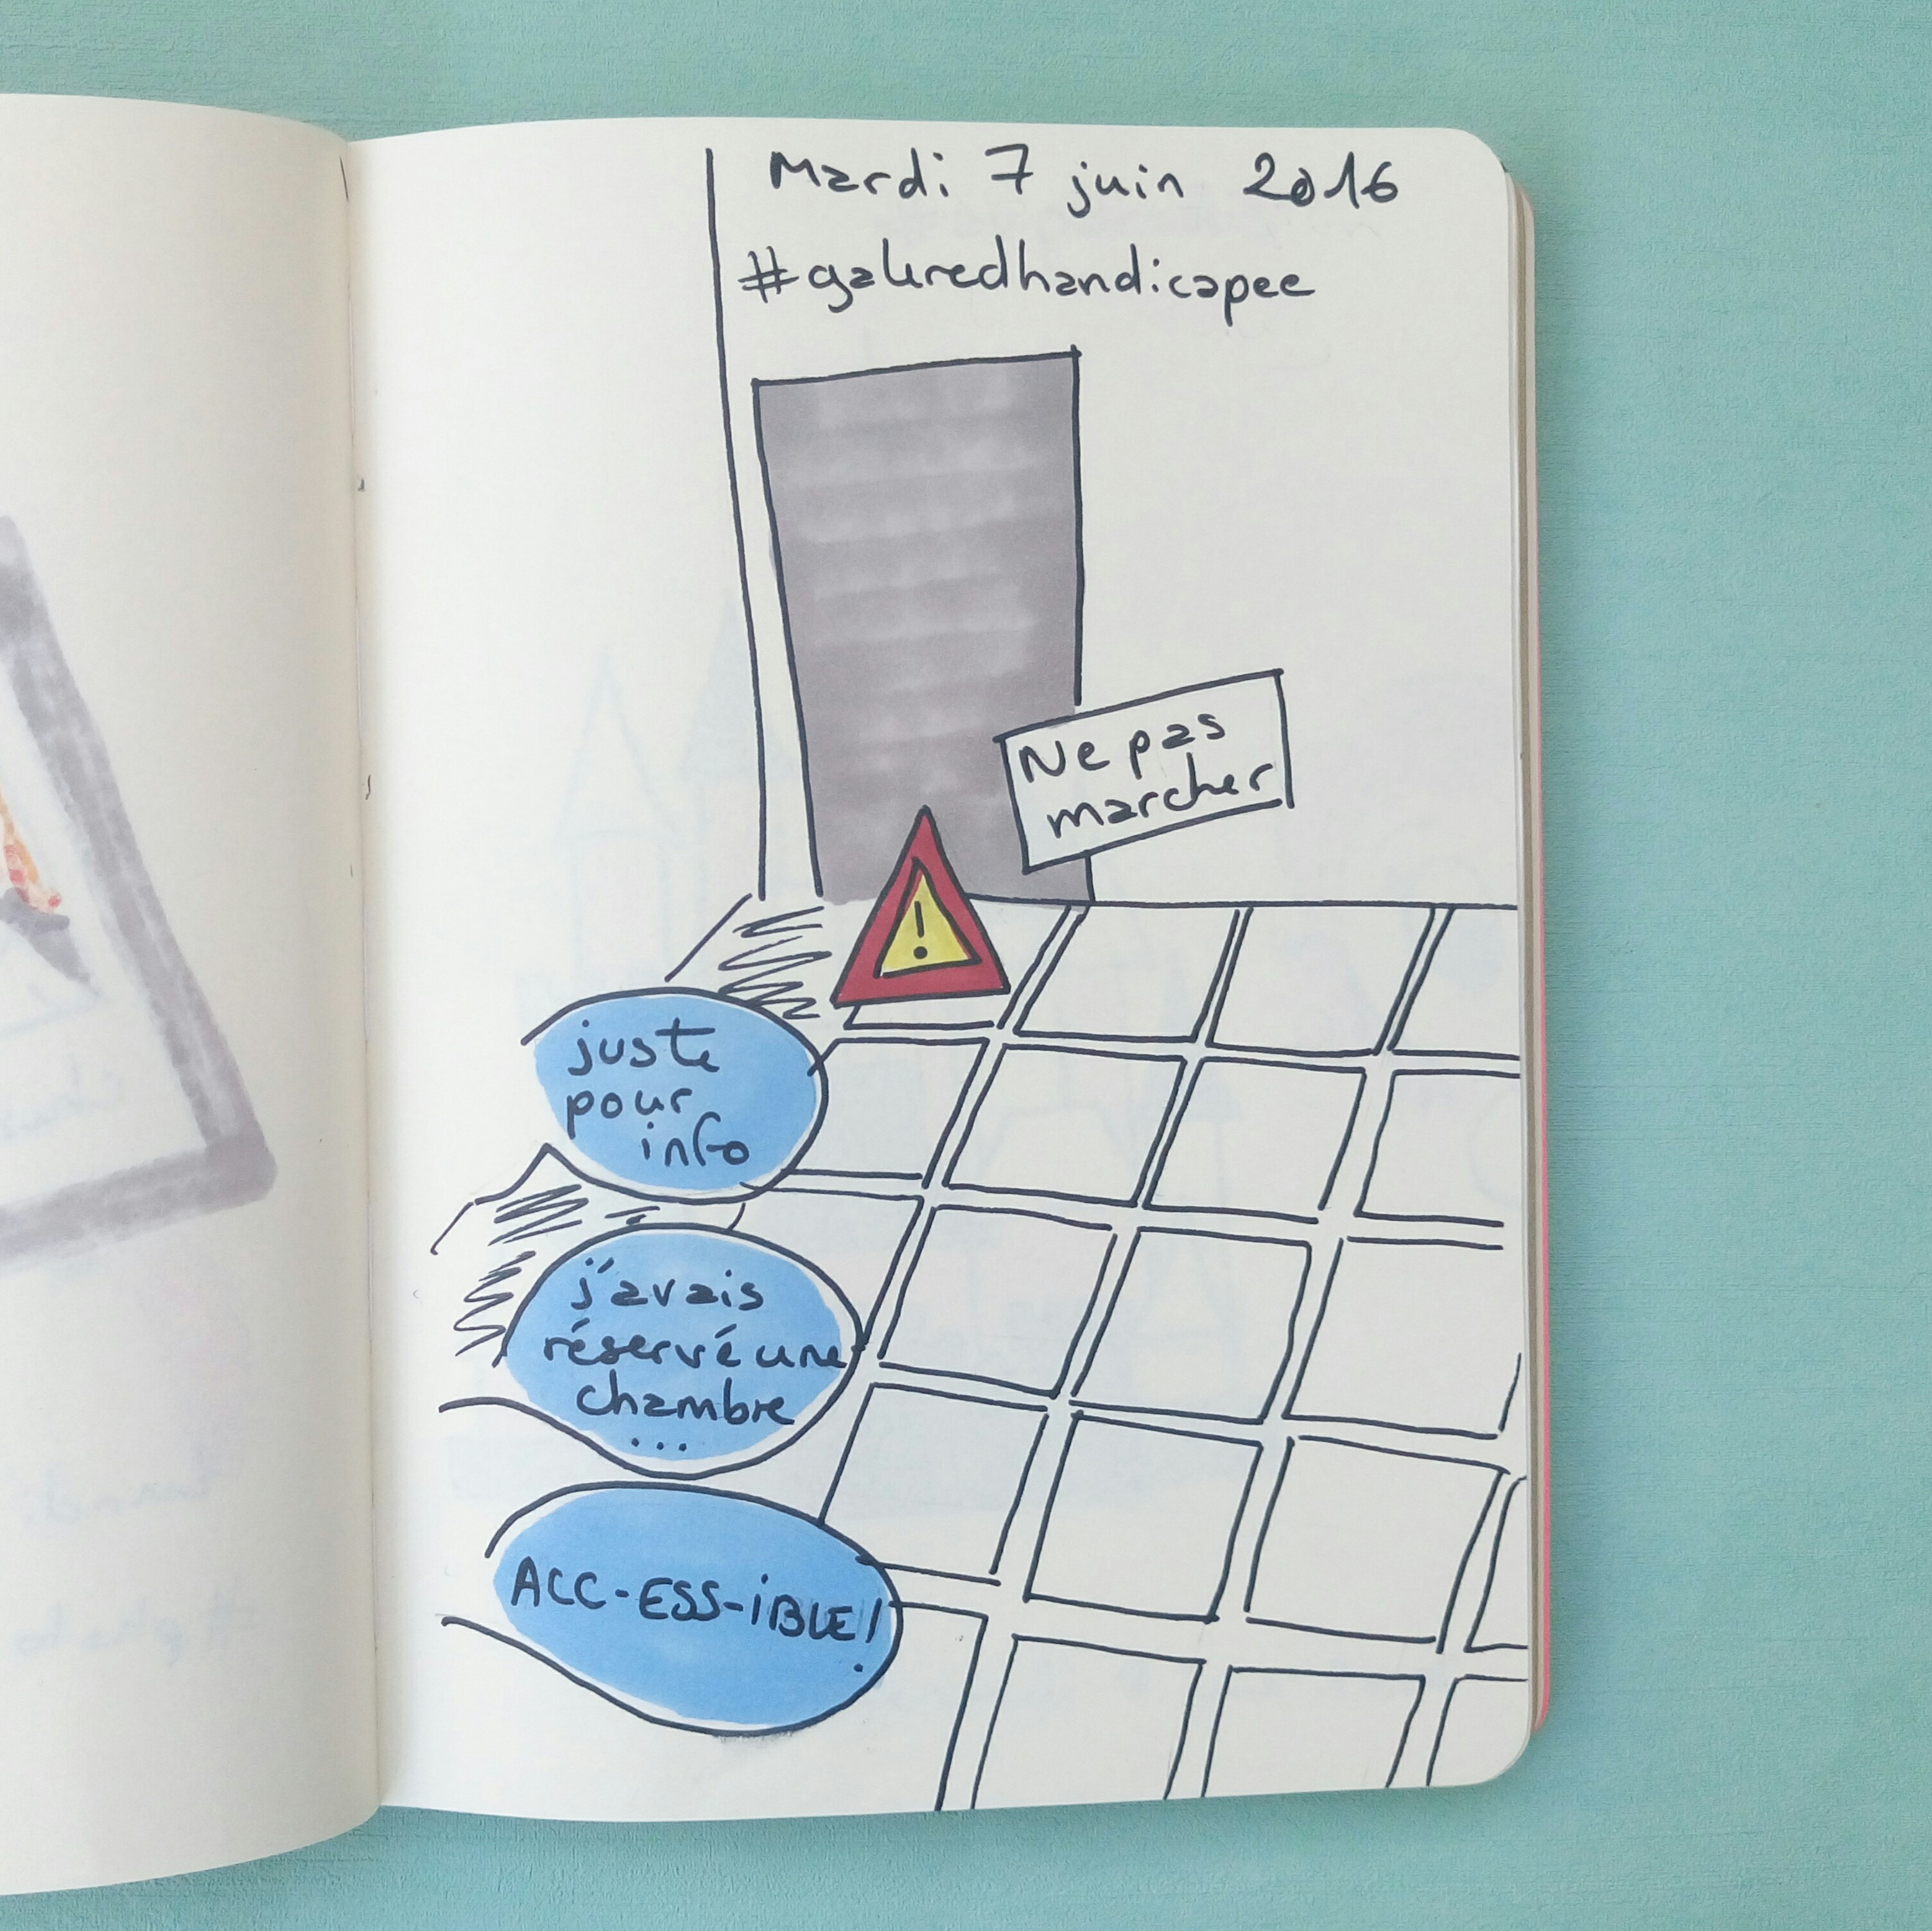 Mardi 7 juin 2016
#galeredhandicapee
Ne pas
marcher
!
juste
pour
info
j'avais
réservé une
chambre
...
ACC-ESS-iBLE!